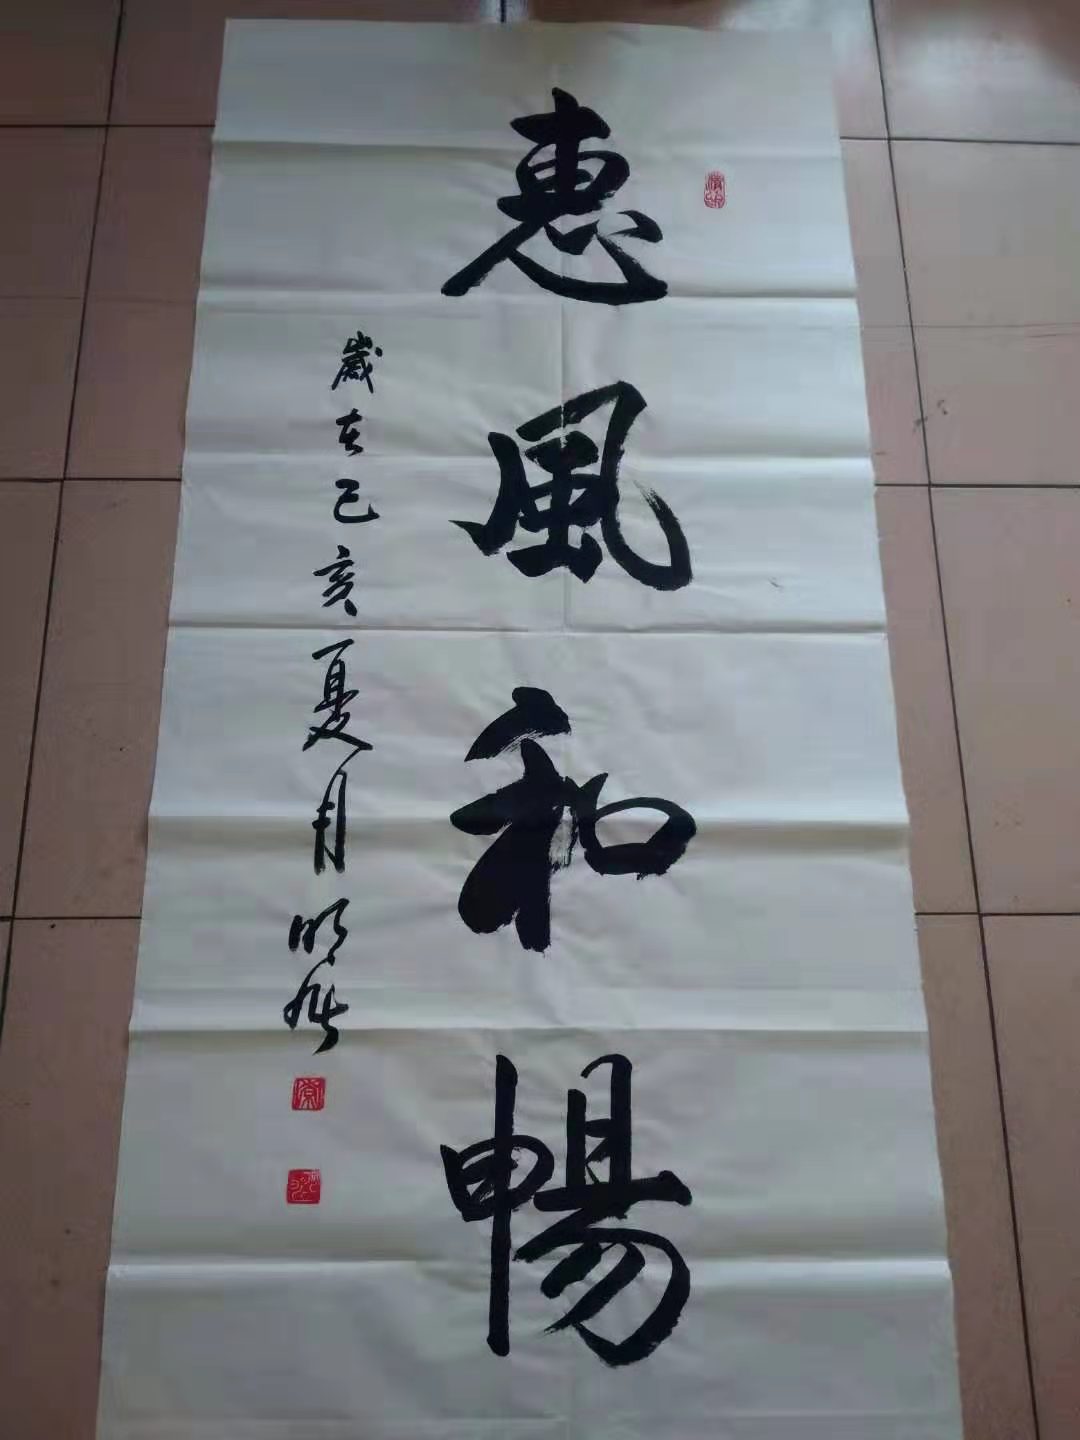 惠風和暢
歲在己亥夏月明